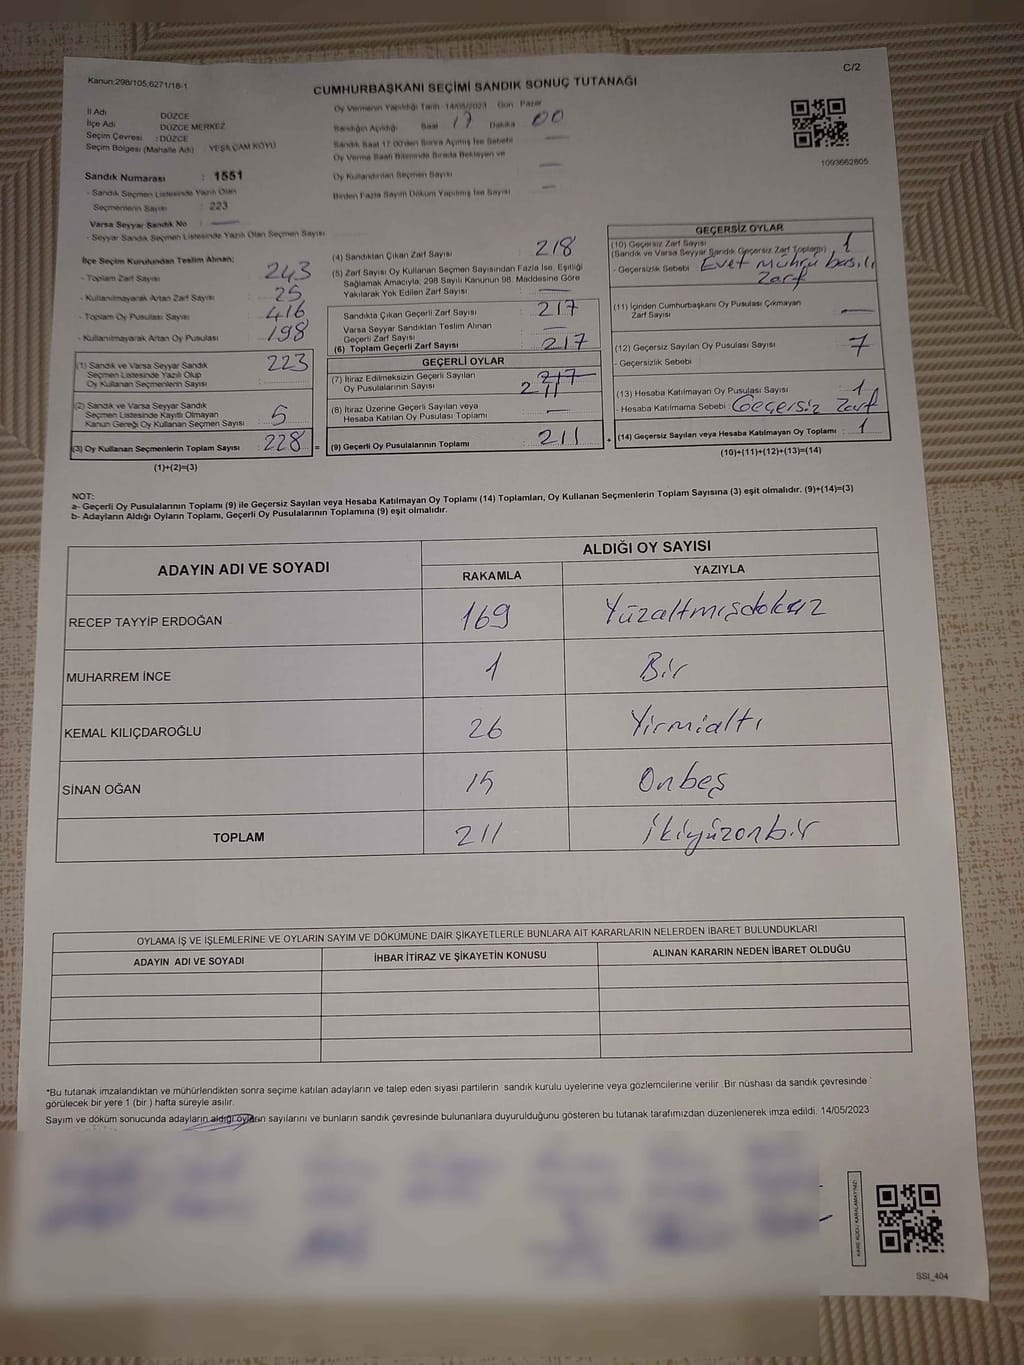 Kanun;298/105;6271/18-1
C/2
CUMHURBAŞKANI SEÇİMİ SANDIK SONUÇ TUTANAĞI
İl Adı DÜZCE
İlçe Adı DÜZCE MERKEZ
Seçim Çevresi : DÜZCE
Seçim Bölgesi (Mahalle Adı) : YEŞİLÇAM KÖYÜ
Oy Vermenin Yapıldığı Tarih : 14/05/2023 Gün : Pazar
Sandığın Açıldığı Saat 17 Dakika 00
Sandık Saat 17:00'den Sonra Açılmış İse Sebebi
Oy Verme Saati Bitiminde Sırada Bekleyen ve
Oy Kullandırılan Seçmen Sayısı
Birden Fazla Sayım Döküm Yapılmış İse Sayısı
1093662805
Sandık Numarası : 1551
- Sandık Seçmen Listesinde Yazılı Olan
Seçmenlerin Sayısı : 223
Varsa Seyyar Sandık No :
- Seyyar Sandık Seçmen Listesinde Yazılı Olan Seçmen Sayısı
İlçe Seçim Kurulundan Teslim Alınan;
- Toplam Zarf Sayısı : 243
- Kullanılmayarak Artan Zarf Sayısı : 25
- Toplam Oy Pusulası Sayısı : 416
- Kullanılmayarak Artan Oy Pusulası : 198
(1) Sandık ve Varsa Seyyar Sandık
Seçmen Listesinde Yazılı Olup
Oy Kullanan Seçmenlerin Sayısı : 223
(2) Sandık ve Varsa Seyyar Sandık
Seçmen Listesinde Kayıtlı Olmayan
Kanun Gereği Oy Kullanan Seçmen Sayısı : 5
(3) Oy Kullanan Seçmenlerin Toplam Sayısı : 228 =
(1)+(2)=(3)
(4) Sandıktan Çıkan Zarf Sayısı : 218
(5) Zarf Sayısı Oy Kullanan Seçmen Sayısından Fazla İse, Eşitliği
Sağlamak Amacıyla; 298 Sayılı Kanunun 98. Maddesine Göre
Yakılarak Yok Edilen Zarf Sayısı :
Sandıkta Çıkan Geçerli Zarf Sayısı : 217
Varsa Seyyar Sandıktan Teslim Alınan
Geçerli Zarf Sayısı :
(6) Toplam Geçerli Zarf Sayısı : 217
GEÇERLİ OYLAR
(7) İtiraz Edilmeksizin Geçerli Sayılan
Oy Pusulalarının Sayısı : 217 211
(8) İtiraz Üzerine Geçerli Sayılan veya
Hesaba Katılan Oy Pusulası Toplamı :
(9) Geçerli Oy Pusulalarının Toplamı : 211 +
GEÇERSİZ OYLAR
(10) Geçersiz Zarf Sayısı
(Sandık ve Varsa Seyyar Sandık Geçersiz Zarf Toplamı) : 1
- Geçersizlik Sebebi : Evet mührü basılı
Zarf
(11) İçinden Cumhurbaşkanı Oy Pusulası Çıkmayan
Zarf Sayısı :
(12) Geçersiz Sayılan Oy Pusulası Sayısı : 7
- Geçersizlik Sebebi :
(13) Hesaba Katılmayan Oy Pusulası Sayısı : 1
- Hesaba Katılmama Sebebi : Geçersiz Zarf
(14) Geçersiz Sayılan veya Hesaba Katılmayan Oy Toplamı : 1
(10)+(11)+(12)+(13)=(14)
NOT:
a- Geçerli Oy Pusulalarının Toplamı (9) ile Geçersiz Sayılan veya Hesaba Katılmayan Oy Toplamı (14) Toplamları, Oy Kullanan Seçmenlerin Toplam Sayısına (3) eşit olmalıdır. (9)+(14)=(3)
b- Adayların Aldığı Oyların Toplamı, Geçerli Oy Pusulalarının Toplamına (9) eşit olmalıdır.
ADAYIN ADI VE SOYADI
ALDIĞI OY SAYISI
RAKAMLA YAZIYLA
RECEP TAYYİP ERDOĞAN 169 Yüzaltmışdokuz
MUHARREM İNCE 1 Bir
KEMAL KILIÇDAROĞLU 26 Yirmialtı
SİNAN OĞAN 15 Onbeş
TOPLAM 211 İkiyüzonbir
OYLAMA İŞ VE İŞLEMLERİNE VE OYLARIN SAYIM VE DÖKÜMÜNE DAİR ŞİKAYETLERLE BUNLARA AİT KARARLARIN NELERDEN İBARET BULUNDUKLARI
ADAYIN ADI VE SOYADI İHBAR İTİRAZ VE ŞİKAYETİN KONUSU ALINAN KARARIN NEDEN İBARET OLDUĞU
*Bu tutanak imzalandıktan ve mühürlendikten sonra seçime katılan adayların ve talep eden siyasi partilerin sandık kurulu üyelerine veya gözlemcilerine verilir .Bir nüshası da sandık çevresinde
görülecek bir yere 1 (bir ) hafta süreyle asılır.
Sayım ve döküm sonucunda adayların aldığı oyların sayılarını ve bunların sandık çevresinde bulunanlara duyurulduğunu gösteren bu tutanak tarafımızdan düzenlenerek imza edildi. 14/05/2023
KARE KODU KARALAMAYINIZ!
SSI_404